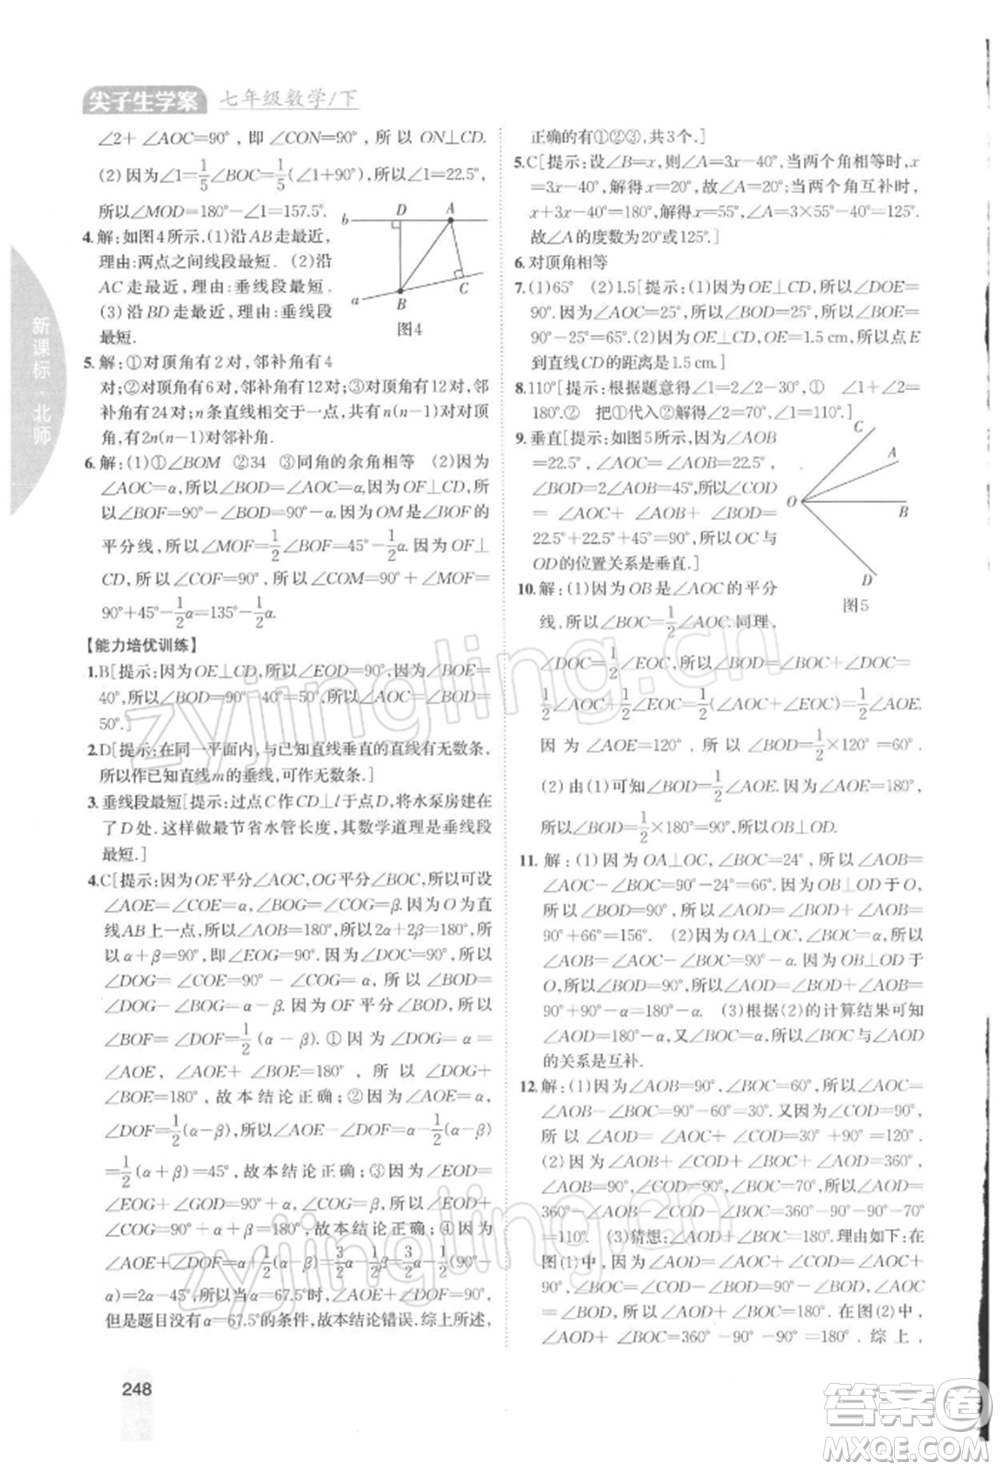 尖子生学案 七年级数学/下
新课标·北师
∠2+∠AOC=90°，即∠CON=90°，所以ON⊥CD.
(2)因为∠1=1/5∠BOC=1/5(∠1+90°)，所以∠1=22.5°，
所以∠MOD=180°-∠1=157.5°.
4.解:如图4所示.(1)沿AB走最近，
理由:两点之间线段最短. (2)沿
AC走最近，理由:垂线段最短.
(3)沿BD走最近，理由:垂线
段最短.
b D A
a B C
图4
5.解:①对顶角有2对,邻补角有4
对;②对顶角有6对,邻补角有12对;③对顶角有12对,
邻补角有24对;n条直线相交于一点,共有n(n-1)对对顶
角,共有2n(n-1)对邻补角.
6.解:(1)①∠BOM ②34 ③同角的余角相等 (2)因为
∠AOC=α,所以∠BOD=∠AOC=α.因为OF⊥CD,所
以∠BOF=90°-∠BOD=90°-α.因为OM是∠BOF的
平分线,所以∠MOF=1/2∠BOF=45°-1/2α.因为OF⊥
CD,所以∠COF=90°,所以∠COM=∠COF+∠MOF=
90°+45°-1/2α=135°-1/2α.
【能力培优训练】
1.B[提示:因为OE⊥CD,所以∠EOD=90°.因为∠BOE=
40°,所以∠BOD=90°-40°=50°,所以∠AOC=∠BOD=
50°.]
2.D[提示:在同一平面内,与已知直线垂直的直线有无数条,
所以作已知直线m的垂线,可作无数条.]
3.垂线段最短[提示:过点C作CD⊥l于点D,将水泵房建在
了D处.这样做最节省水管长度,其数学道理是垂线段
最短.]
4.C[提示:因为OE平分∠AOC,OG平分∠BOC,所以可设
∠AOE=∠COE=α,∠BOG=∠COG=β.因为O为直
线AB上一点,所以∠AOB=180°,所以2α+2β=180°,所以
α+β=90°,即∠EOG=90°.所以∠EOD=
∠DOG=∠EOG=90°,所以∠BOD=
∠DOG-∠BOG=α-β.因为OF平分∠BOD,所以∠BOF=
∠DOF=1/2(α-β).①因为∠DOG=∠AOE+
∠BOG=90°,故本结论正确;②因为∠AOE=α,
∠DOF=1/2(α-β),所以∠AOE-∠DOF=α-1/2(α-β)
=1/2(α+β)=45°,故本结论正确;③因为∠EOD=
∠EOG+∠GOD=90°+α,∠COG=β,所以∠EOD+
∠COG=90°+α+β=180°,故本结论正确;④因为
∠AOE+∠DOF=α+1/2(α-β)=3/2α-1/2β=3/2α-1/2(90°-
α)=2α-45°,所以当α=67.5°时,∠AOE+∠DOF=90°,
但是题目没有α=67.5°的条件,故本结论错误.综上所述,
正确的有①②③,共3个.]
5.C[提示:设∠B=x,则∠A=3x-40°,当两个角相等时,x=
3x-40°,解得x=20°,故∠A=20°;当两个角互补时,
x+3x-40°=180°,解得x=55°,故∠A=3×55°-40°=125°.
故∠A的度数为20°或125°.]
6.对顶角相等
7.(1)65° (2)1.5[提示:(1)因为OE⊥CD,所以∠DOE=
90°.因为∠BOD=25°,所以∠BOE=∠DOE-∠BOD=
90°-25°=65°.(2)因为OE⊥CD,OE=1.5 cm,所以点E
到直线CD的距离是1.5 cm.]
8.110°[提示:根据题意得∠2=∠1-30°+∠2=
180°.② 把①代入②解得∠2=70°,∠1=110°.]
9.垂直[提示:如图5所示,因为∠AOB=
22.5°,所以∠AOC=∠AOB=22.5°,
∠BOD=2∠AOB=45°,所以∠COD=
∠AOC+∠AOB+∠BOD=
22.5°+22.5°+45°=90°,所以OC与
OD的位置关系是垂直.]
C
A
O B
D
图5
10.解:(1)因为OB是∠AOC的平分
线,所以∠BOC=1/2∠AOC.同理,
∠DOC=1/2∠EOC,所以∠BOD=∠BOC+∠DOC=
1/2∠AOC+1/2∠EOC=1/2(∠AOC+∠EOC)=1/2∠AOE.
因为∠AOE=120°,所以∠BOD=1/2×120°=60°.
(2)由(1)可知∠BOD=1/2∠AOE.因为∠AOE=180°,
所以∠BOD=1/2×180°=90°,所以OB⊥OD.
11.解:(1)因为OA⊥OC,∠BOC=24°,所以∠AOB=
∠AOC-∠BOC=90°-24°=66°.因为OB⊥OD于O,
所以∠BOD=90°,所以∠AOD=∠BOD+∠AOB=
90°+66°=156°. (2)因为OA⊥OC,∠BOC=α,所以
∠AOB=∠AOC-∠BOC=90°-α.因为OB⊥OD于
O,所以∠BOD=90°,所以∠AOD=∠BOD+∠AOB=
90°+90°-α=180°-α. (3)根据(2)的计算结果可知
∠AOD=180°-α,又∠BOC=α,所以∠BOC与∠AOD
的关系是互补.
12.解:(1)因为∠AOB=90°,∠BOC=60°,所以∠AOC=
∠AOB-∠BOC=90°-60°=30°.又因为∠COD=90°,
所以∠AOD=∠AOC+∠COD=30°+90°=120°.
(2)因为∠AOB+∠COD+∠BOC+∠AOD=360°,
∠AOB=90°,∠COD=90°,∠BOC=70°,所以∠AOD=
360°-∠AOB-∠COD-∠BOC=360°-90°-90°-70°
=110°. (3)猜想:∠AOD+∠BOC=180°.理由如下:
248
zyjingling.cn
zyjingling.cn
答案圈
MXQE.COM